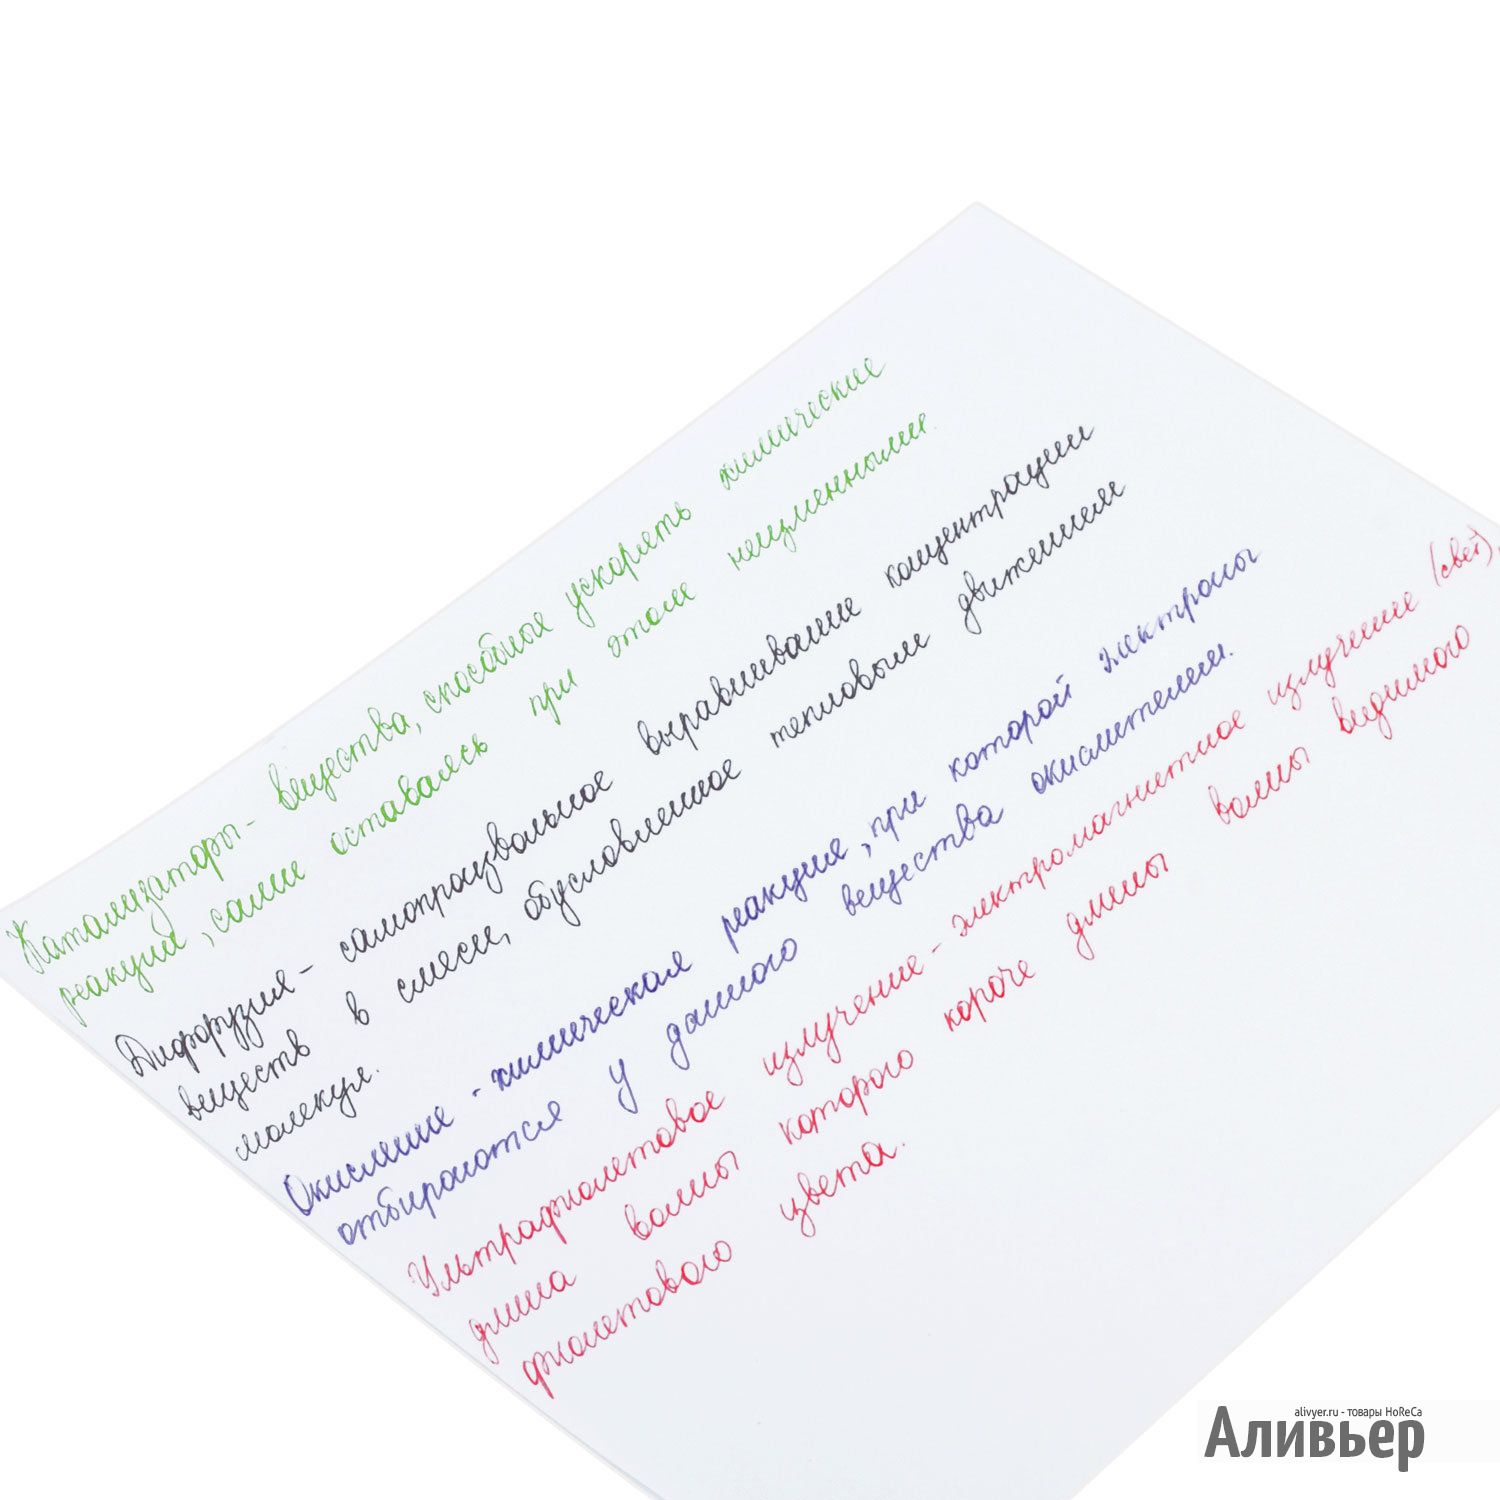 Катализаторы - вещества, способные ускорять химические
реакции, сами оставаясь при этом неизменными.
Диффузия - самопроизвольное выравнивание концентрации
веществ в смеси, обусловленное тепловым движением
молекул.
Окисление - химическая реакция, при которой электроны
отбираются у данного вещества окислителем.
Ультрафиолетовое излучение - электромагнитное излучение (свет),
длина волны которого короче длины волны видимого
фиолетового цвета.
alivyer.ru - товары HoReCa
Аливьер